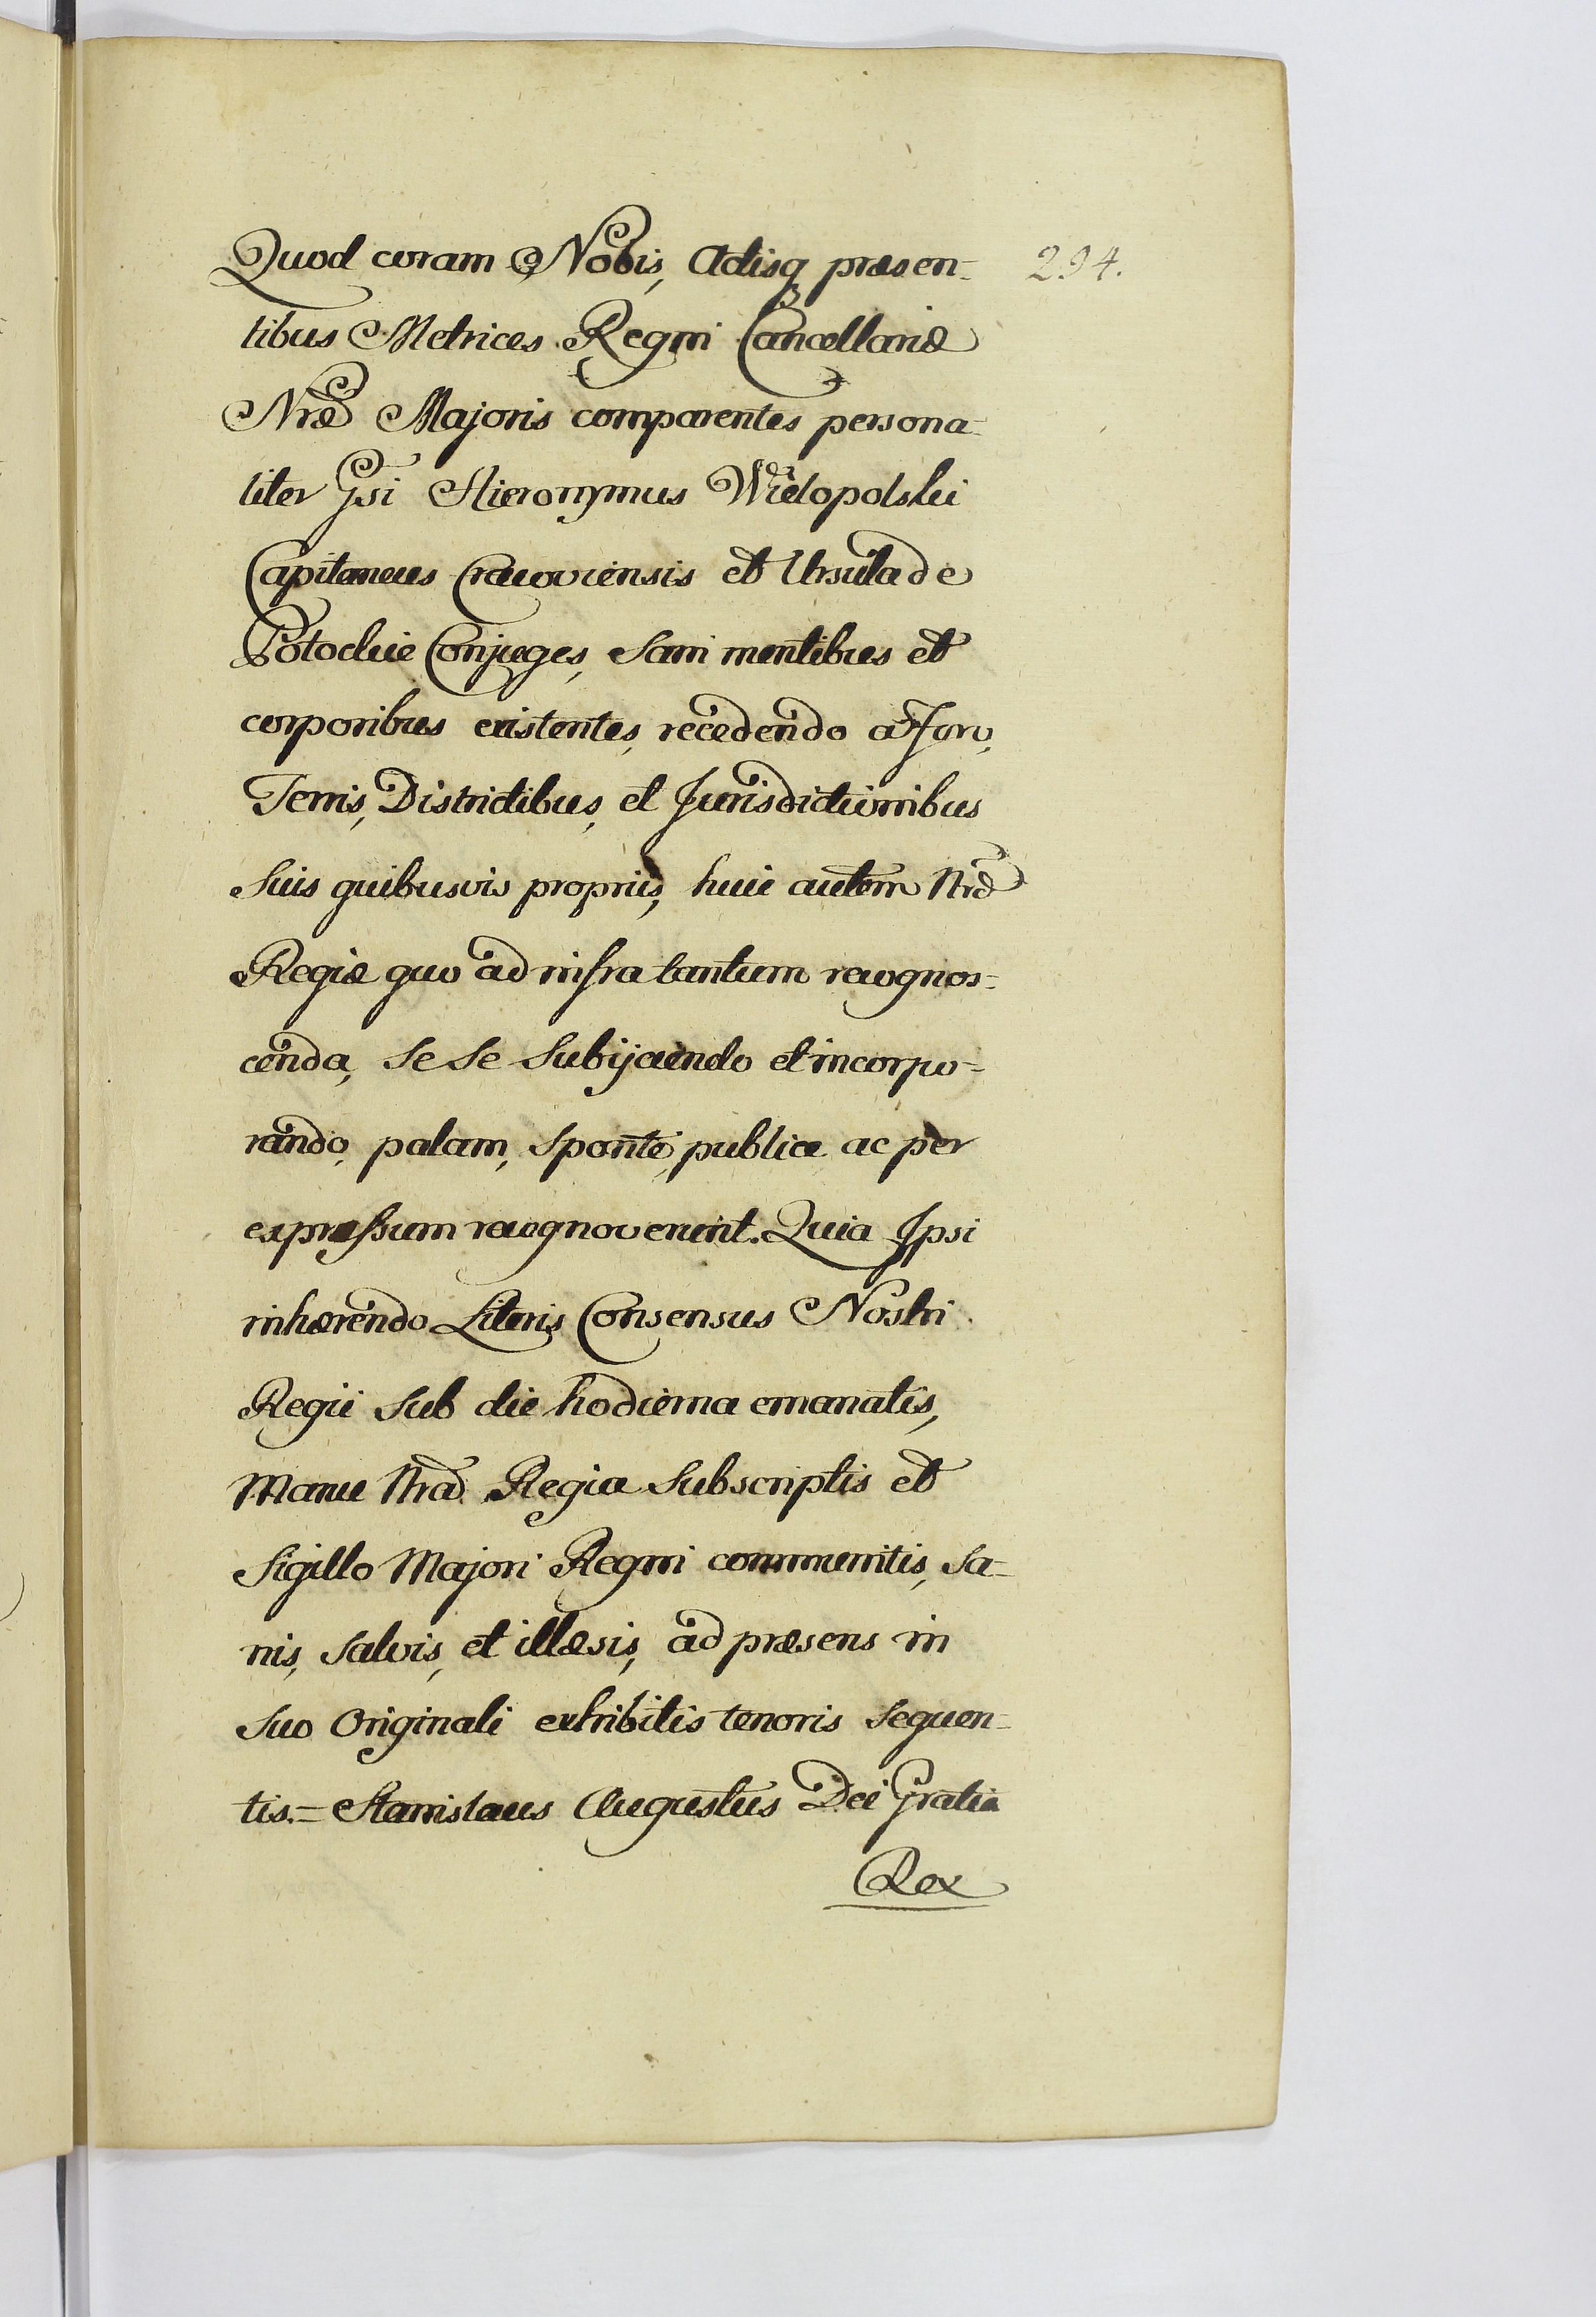 Quod coram Nobis, Actisq præsen-
294.
tibus Metrices Regni Cancellariæ
Nræ Majoris comparentes persona-
liter Gsi Hieronymus Wielopolski
Capitaneus Cracoviensis et Ursula de
Potockie Conjuges, sani mentibus et
corporibus existentes, recedendo a Foro,
Terris, Districtibus, et Jurisdictionibus
suis quibusvis propriis, huic autem Nræ
Regiæ quo ad infra tantum recognos-
cenda, se se subijciendo et incorpo-
rando, palam, sponte, publice ac per
expressum recognoverunt. Quia Ipsi
inhærendo Literis Consensus Nostri
Regii sub die hodierna emanatis,
Manu Nra Regia subscriptis et
Sigillo Majori Regni communitis, sa-
nis, salvis, et illæsis, ad præsens in
suo Originali exhibitis tenoris sequen-
tis.= Stanislaus Augustus Dei Gratia
Rex